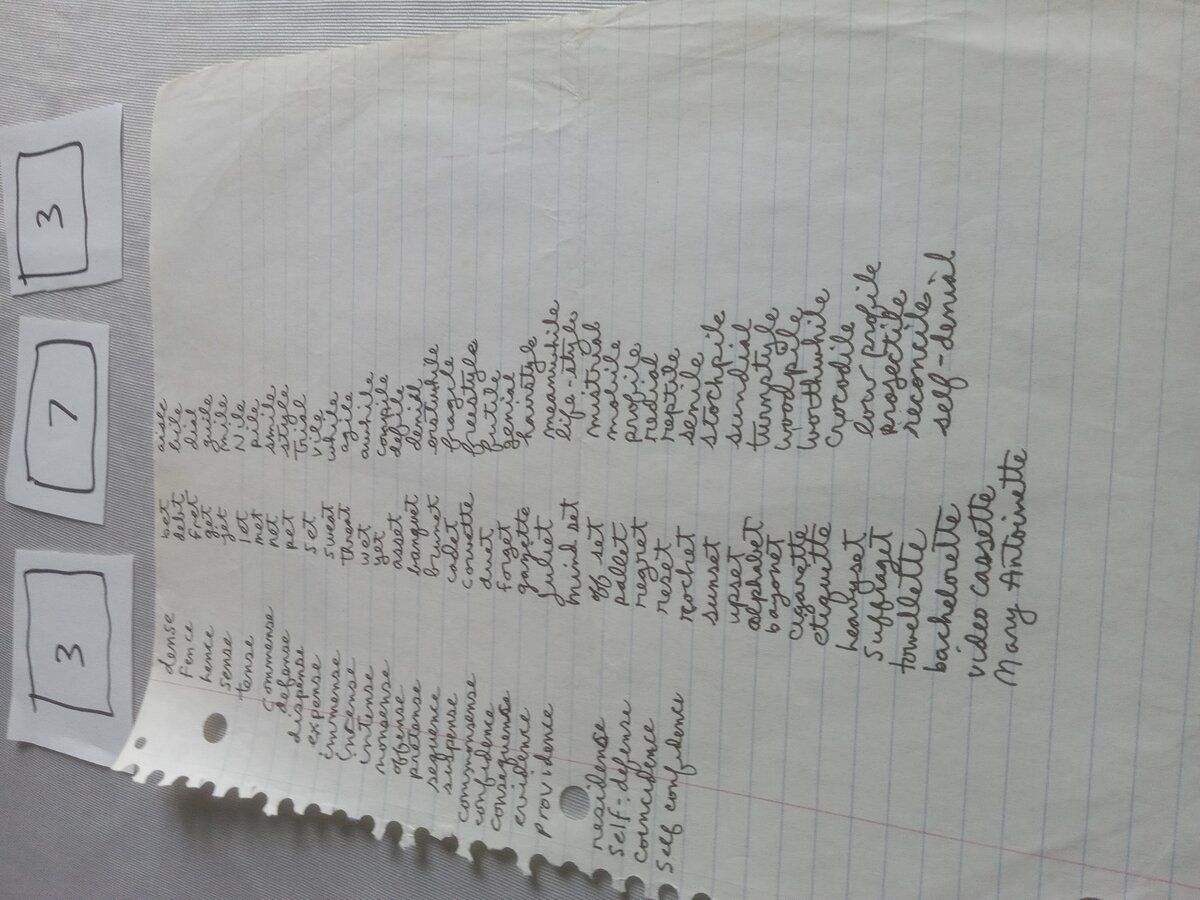 3
7
3
dense
fence
hence
sense
tense
commense
defense
dispense
expense
immense
incense
intense
nonsense
offense
pretense
sequence
suspense
commonsense
confidence
consequence
evidence
providence
residense
self-defense
coincidence
self confidence
bet
debt
fret
get
jet
let
met
net
pet
set
sweat
threat
wet
yet
asset
banquet
brunet
cadet
corvette
duet
forget
gazette
Juliet
mind set
off set
pallet
regret
reset
rochet
sunset
upset
alphabet
bayonet
cigarette
etiquette
heavyset
suffraget
towellette
bachelorette
video cassette
Mary Antoinette
aisle
bile
dial
guile
mile
Nile
pile
smile
style
trial
vile
while
agile
awhile
compile
defile
denial
erstwhile
fragile
freestyle
futile
genial
hairstyle
meanwhile
life-style
mistrial
mobile
profile
redial
reptile
senile
stockpile
sundial
turnstyle
woodpile
worthwhile
crocodile
low profile
projectile
reconcile
self-denial